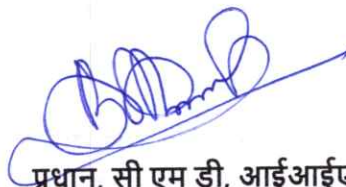 प्रधान, सी एम डी, आईआईए